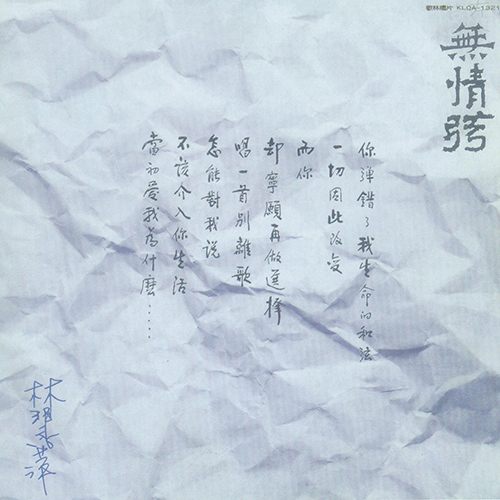 歌林唱片 KLQA-1321
無情弦
你彈錯了我生命的和弦
一切因此改變
而你
却寧願再做選擇
唱一首別離歌
怎能對我說
不該介入你生活
當初愛我為什麼.....
林翠萍